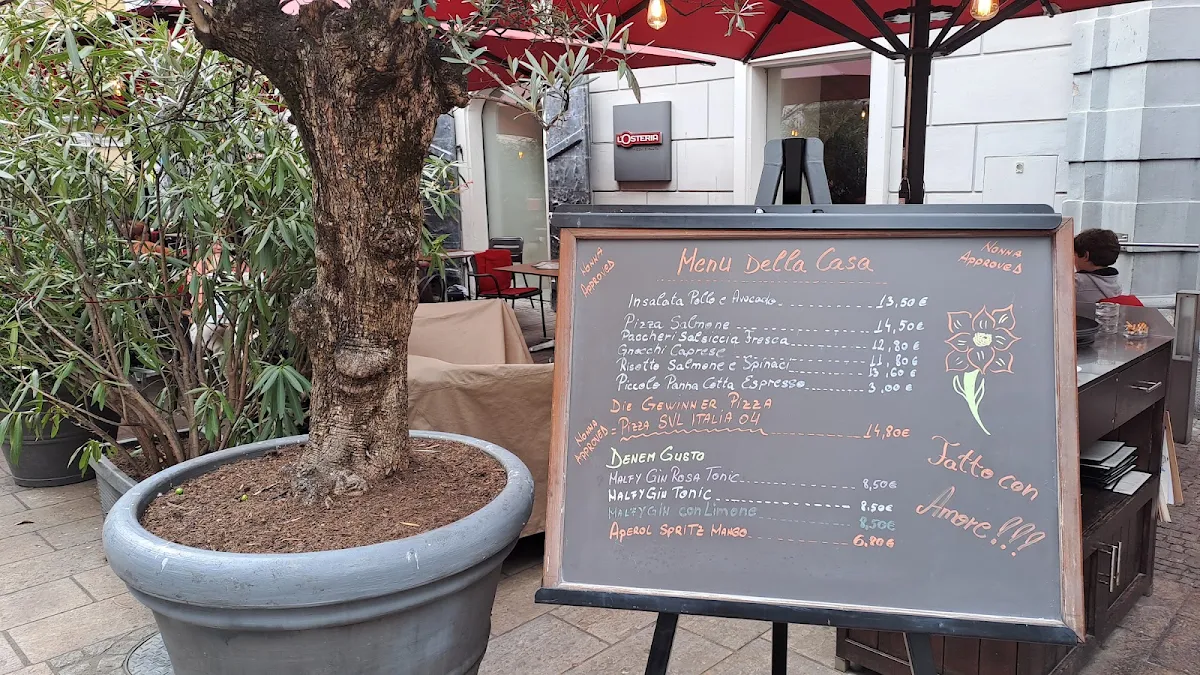 L'OSTERIA
Menu Della Casa
NONNA APPROVED
NONNA APPROVED
Insalata Pollo e Avocado 13,50 €
Pizza Salmone 14,50 €
Paccheri Salsiccia Fresca 12,80 €
Gnocchi Caprese 11,80 €
Risotto Salmone e Spinaci 13,60 €
Piccolo Panna Cotta Espresso 3,00 €
Die GEWINNER PIZZA
NONNA APPROVED
- Pizza SVL ITALIA 04 14,80€
DENEM GUSTO
MALFY GIN ROSA TONIC 8,50€
MALFY GIN TONIC 8,50€
MALFY GIN con Limone 8,50€
APEROL SPRITZ MANGO 6,80€
Fatto con
Amore!!!